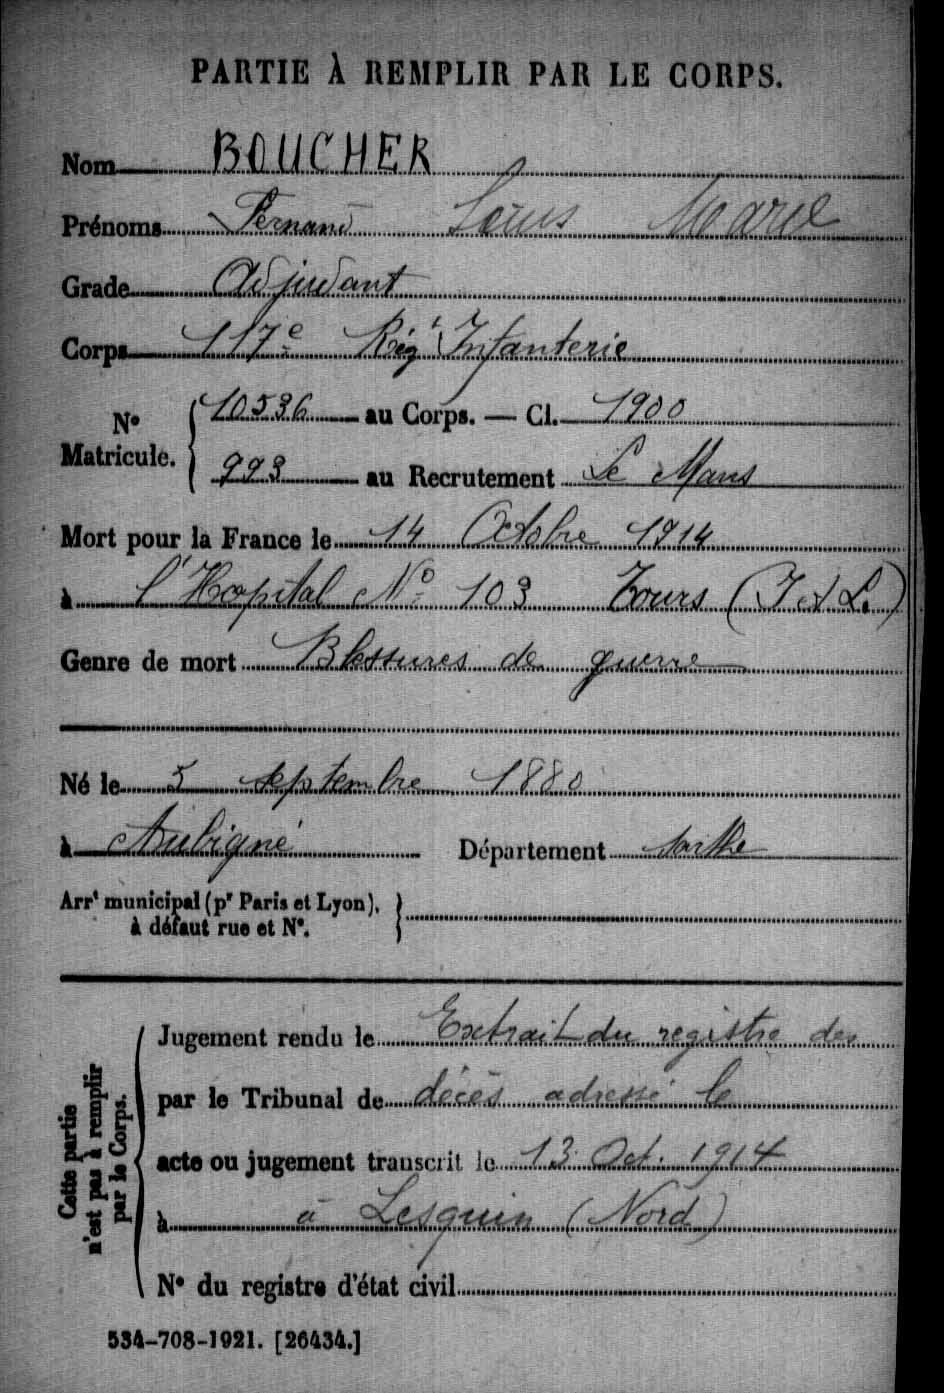 PARTIE À REMPLIR PAR LE CORPS.
Nom BOUCHER
Prénoms Fernand Louis Marie
Grade Adjudant
Corps 117e Régt Infanterie
N° Matricule. { 10536 au Corps. — Cl. 1900
993 au Recrutement Le Mans
Mort pour la France le 14 Octobre 1914
à l'Hopital N° 103 Tours (I et L.)
Genre de mort Blessures de guerre
Né le 5 septembre 1880
à Aubigné Département Sarthe
Arrt municipal (pr Paris et Lyon),
à défaut rue et N°.
Cette partie
n'est pas à remplir
par le Corps.
Jugement rendu le Extrait du registre des
par le Tribunal de décès adressé le
acte ou jugement transcrit le 13 Oct. 1914
à à Lesquin (Nord)
N° du registre d'état civil
534-708-1921. [26434.]